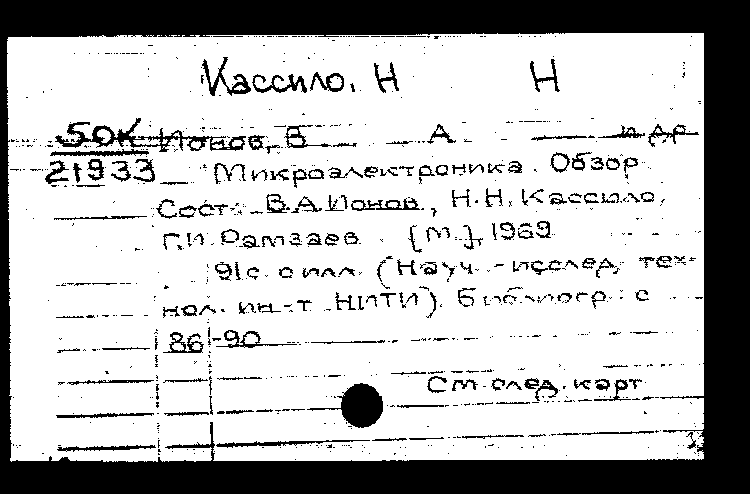 Кассило, Н Н
50К Ионов, В А и др
21933 Микроэлектроника. Обзор
Сост. В.А.Ионов, Н.Н.Кассило,
Г.И. Рамзаев. [М.], 1969
91с. с илл. (Науч.-исслед. тех-
нол. ин-т НИТИ). Библиогр: с
86-90
См. след. карт